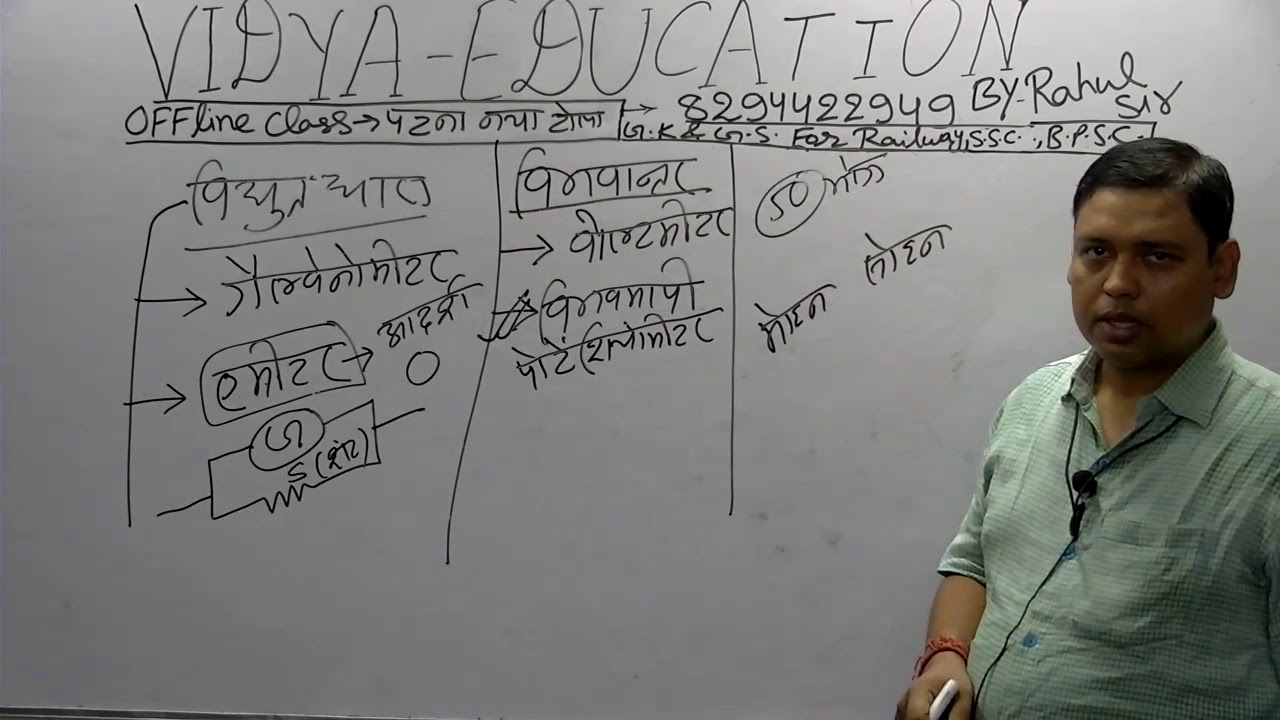 VIDYA-EDUCATION
BY-Rahul Sir
OFFline class→पटना नया टोला → 8294422949
G.K & G.S. For Railway, S.S.C., B.P.S.C.
विद्युत धारा
→ गैल्वेनोमीटर
→ एमीटर → आदर्श
0
G
S (शंट)
विभवान्तर
→ वोल्टमीटर
→ विभवमापी
पोटेंशियोमीटर
50
सोहन
मोहन